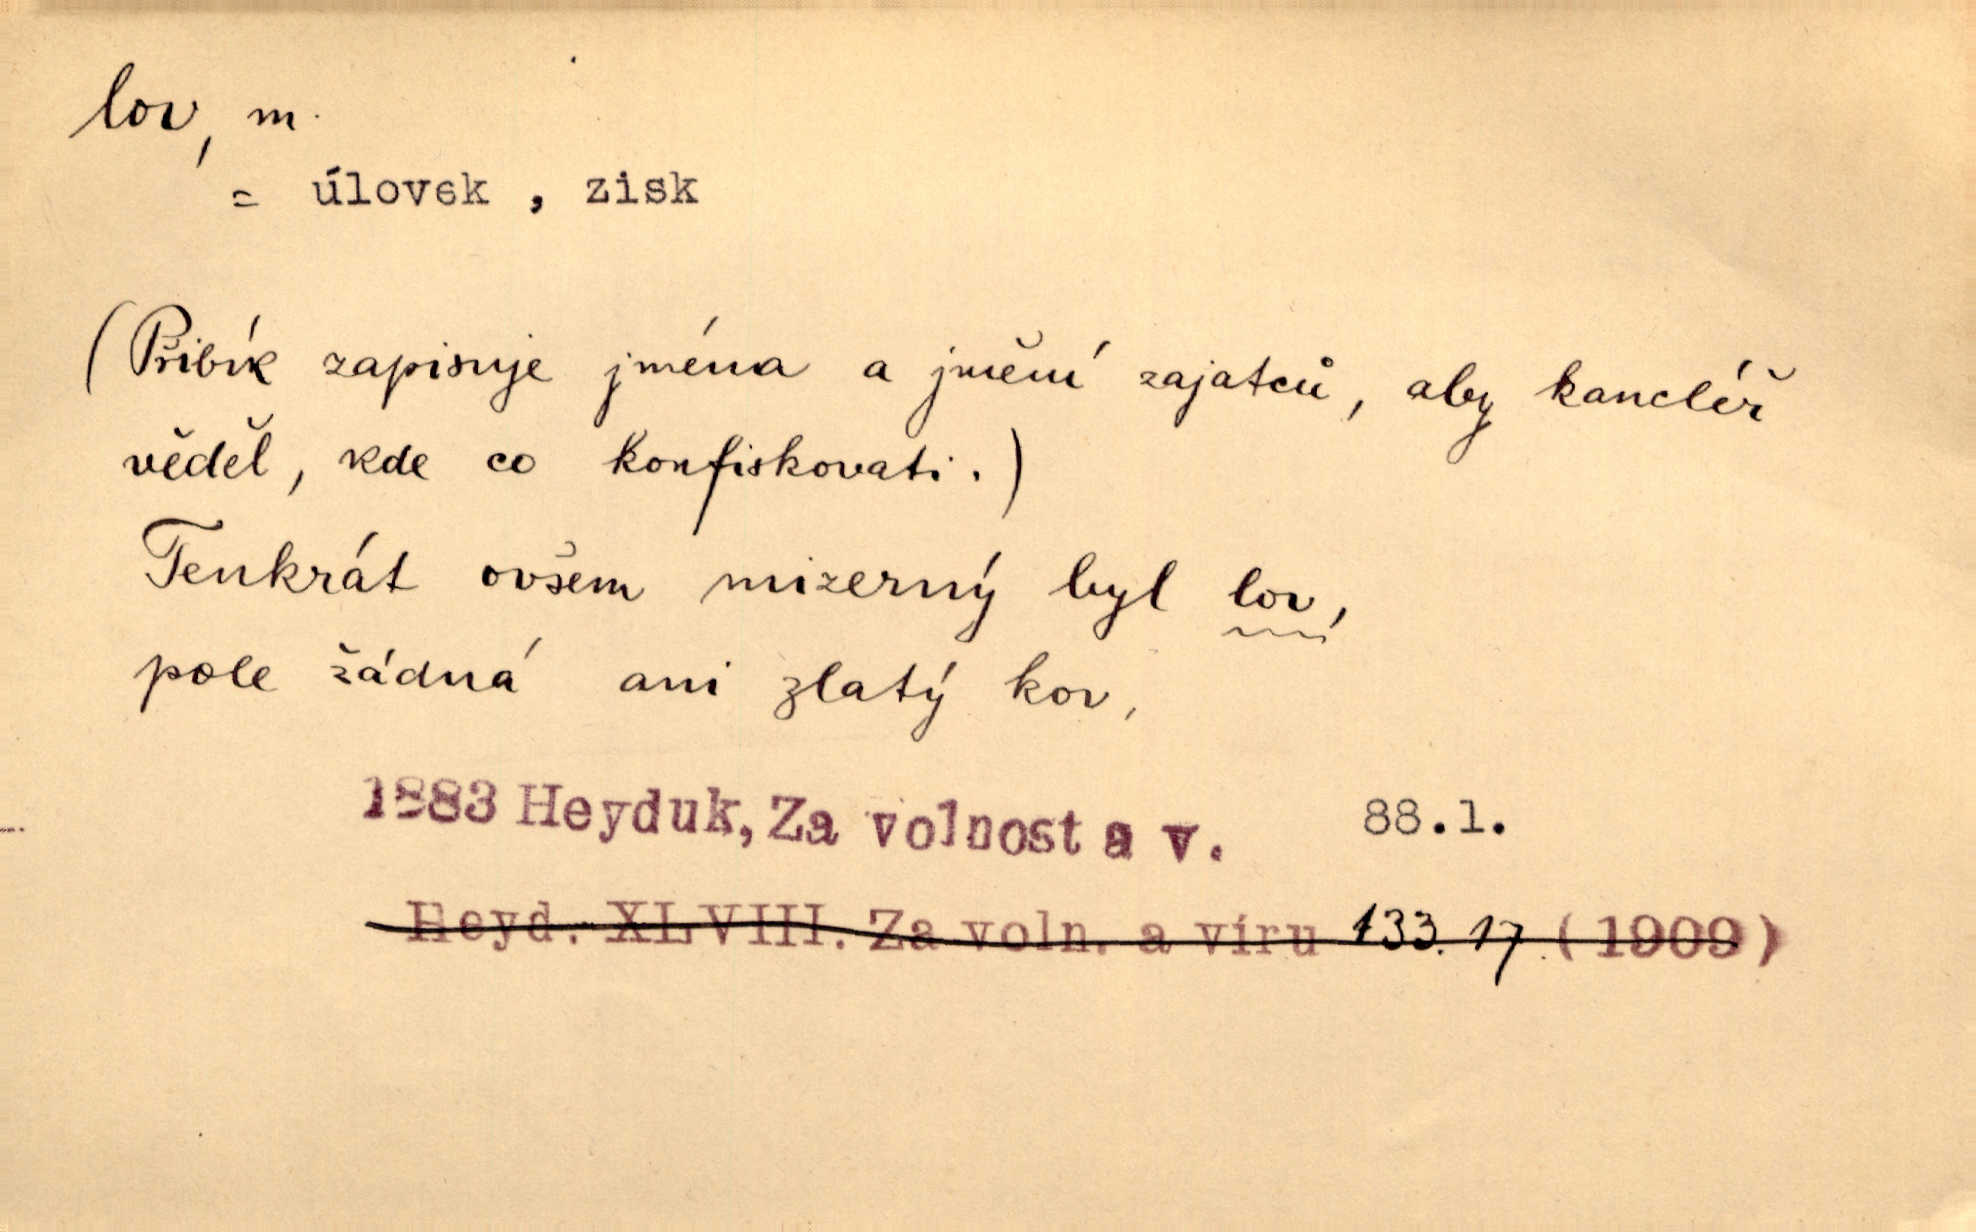 lov, m.
= úlovek , zisk
(Přibík zapisuje jména a jmění zajatců, aby kancléř
věděl, kde co konfiskovati.)
Tenkrát ovšem mizerný byl lov,
pole žádná ani zlatý kov,
1883 Heyduk, Za volnost a v. 88.1.
Heyd. XLVIII. Za voln. a víru 133. 17. (1909)